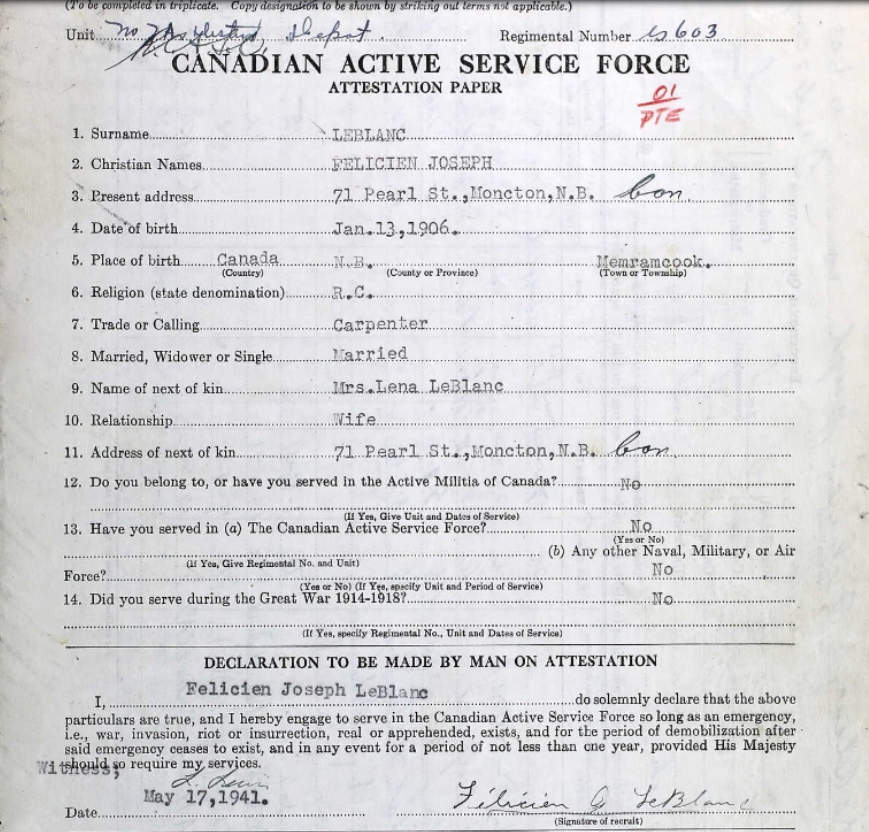 (To be completed in triplicate. Copy designation to be shown by striking out terms not applicable.)
Unit No 7 District Depot. Regimental Number 603
CANADIAN ACTIVE SERVICE FORCE
ATTESTATION PAPER
01
PTE
1. Surname LEBLANC
2. Christian Names FELICIEN JOSEPH
3. Present address 71 Pearl St.,Moncton,N.B.
4. Date of birth Jan.13,1906.
5. Place of birth Canada N.B. Memramcook.
(Country) (County or Province) (Town or Township)
6. Religion (state denomination) R.C.
7. Trade or Calling Carpenter
8. Married, Widower or Single Married
9. Name of next of kin Mrs.Lena LeBlanc
10. Relationship Wife
11. Address of next of kin 71 Pearl St.,Moncton,N.B.
12. Do you belong to, or have you served in the Active Militia of Canada? No
(If Yes, Give Unit and Dates of Service)
13. Have you served in (a) The Canadian Active Service Force? No
(Yes or No)
(b) Any other Naval, Military, or Air
(If Yes, Give Regimental No. and Unit)
Force? No
(Yes or No) (If Yes, specify Unit and Period of Service)
14. Did you serve during the Great War 1914-1918? No
(If Yes, specify Regimental No., Unit and Dates of Service)
DECLARATION TO BE MADE BY MAN ON ATTESTATION
I, Felicien Joseph LeBlanc do solemnly declare that the above
particulars are true, and I hereby engage to serve in the Canadian Active Service Force so long as an emergency,
i.e., war, invasion, riot or insurrection, real or apprehended, exists, and for the period of demobilization after
said emergency ceases to exist, and in any event for a period of not less than one year, provided His Majesty
should so require my services.
Witness;
Date May 17,1941. Félicien J LeBlanc
(Signature of recruit)